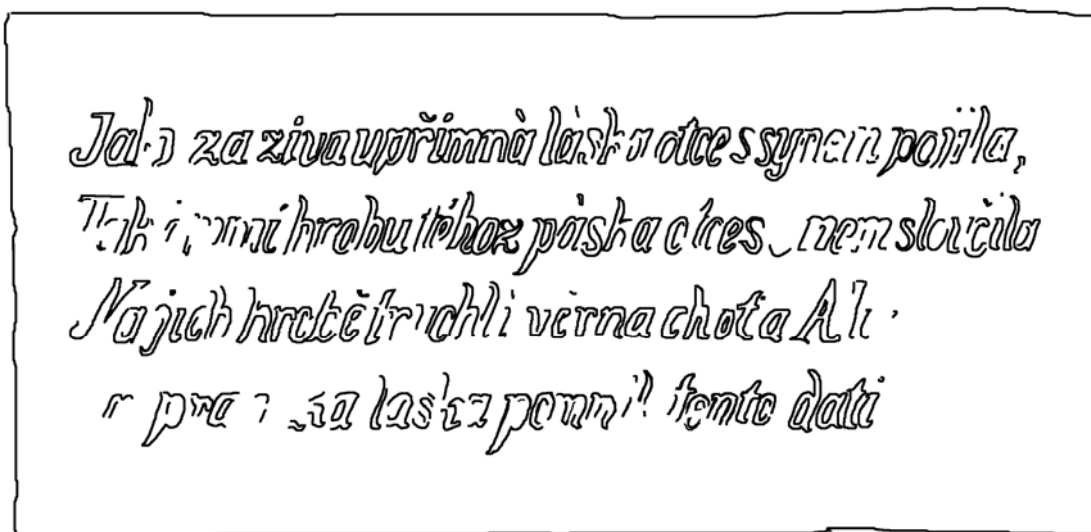 Jako za ziva upřimnà láska otce s synem pojila,
Tak i v tmí hrobu téhoz páska otce s synem sloučila
Na jich hrobě truchlí věrna choťa A
laska pomník tento dati